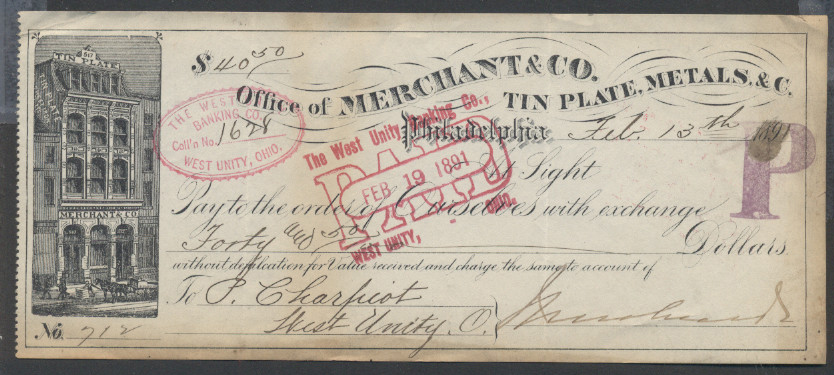 50
TIN PLATE
MERCHANT & CO.
$ 40 50
Office of MERCHANT & CO.
TIN PLATE, METALS, & C.
THE WEST
BANKING CO.
Coll'n No. 1628
WEST UNITY, OHIO.
Philadelphia Feb. 13th 1891
The West Unity Banking Co.,
PAID
FEB 19 1891
WEST UNITY, OHIO.
P
At Sight
Pay to the order of Ourselves with exchange
Forty and 50 Dollars
without defalcation for Value received and charge the same to account of
To P. Charpiot
West Unity, O.
No. 712